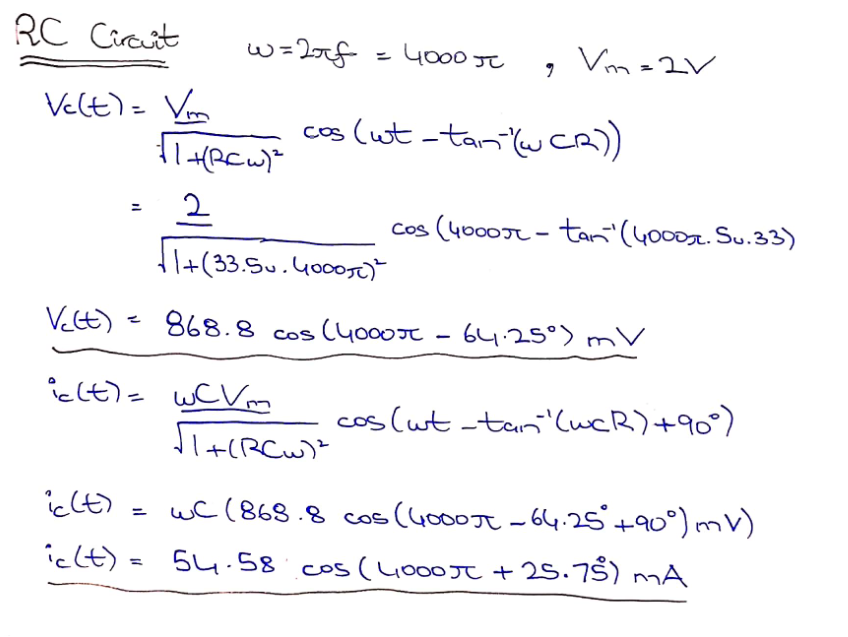 RC Circuit
ω = 2πf = 4000π , Vm = 2V
Vc(t) = Vm / √(1+(RCω)²) cos(ωt – tan⁻¹(ωCR))
= 2 / √(1+(33.5u.4000π)²) cos(4000π – tan⁻¹(4000π.5u.33)
Vc(t) = 868.8 cos(4000π – 64.25°) mV
ic(t) = ωCVm / √(1+(RCω)²) cos(ωt – tan⁻¹(ωCR)+90°)
ic(t) = ωC(868.8 cos(4000π – 64.25°+90°) mV)
ic(t) = 54.58 cos(4000π + 25.75°) mA